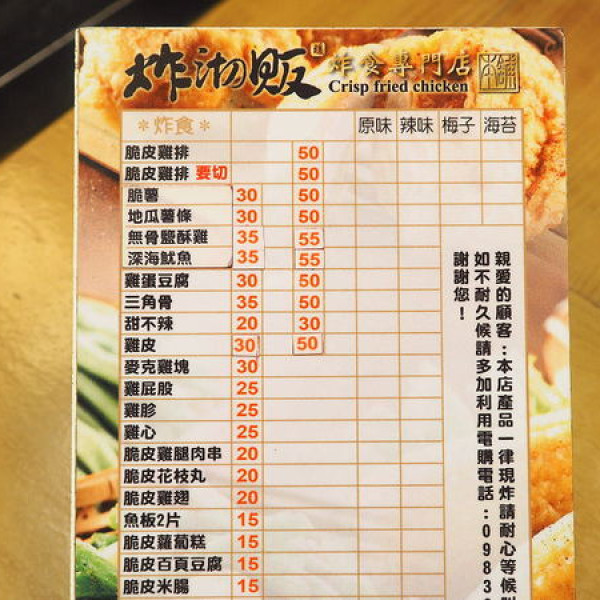 炸物販 炸食專門店 本舖
Crisp fried chicken
＊炸食＊ 原味 辣味 梅子 海苔
脆皮雞排 50
脆皮雞排 要切 50
脆薯 30 50
地瓜薯條 30 50
無骨鹽酥雞 35 55
深海魷魚 35 55
雞蛋豆腐 30 50
三角骨 35 50
甜不辣 20 30
雞皮 30 50
麥克雞塊 30
雞屁股 25
雞胗 25
雞心 25
脆皮雞腿肉串 20
脆皮花枝丸 20
脆皮雞翅 20
魚板2片 15
脆皮蘿蔔糕 15
脆皮百頁豆腐 15
脆皮米腸 15
親愛的顧客：本店產品一律現炸請耐心等候
如不耐久候請多加利用電購電話：0983
謝謝您！